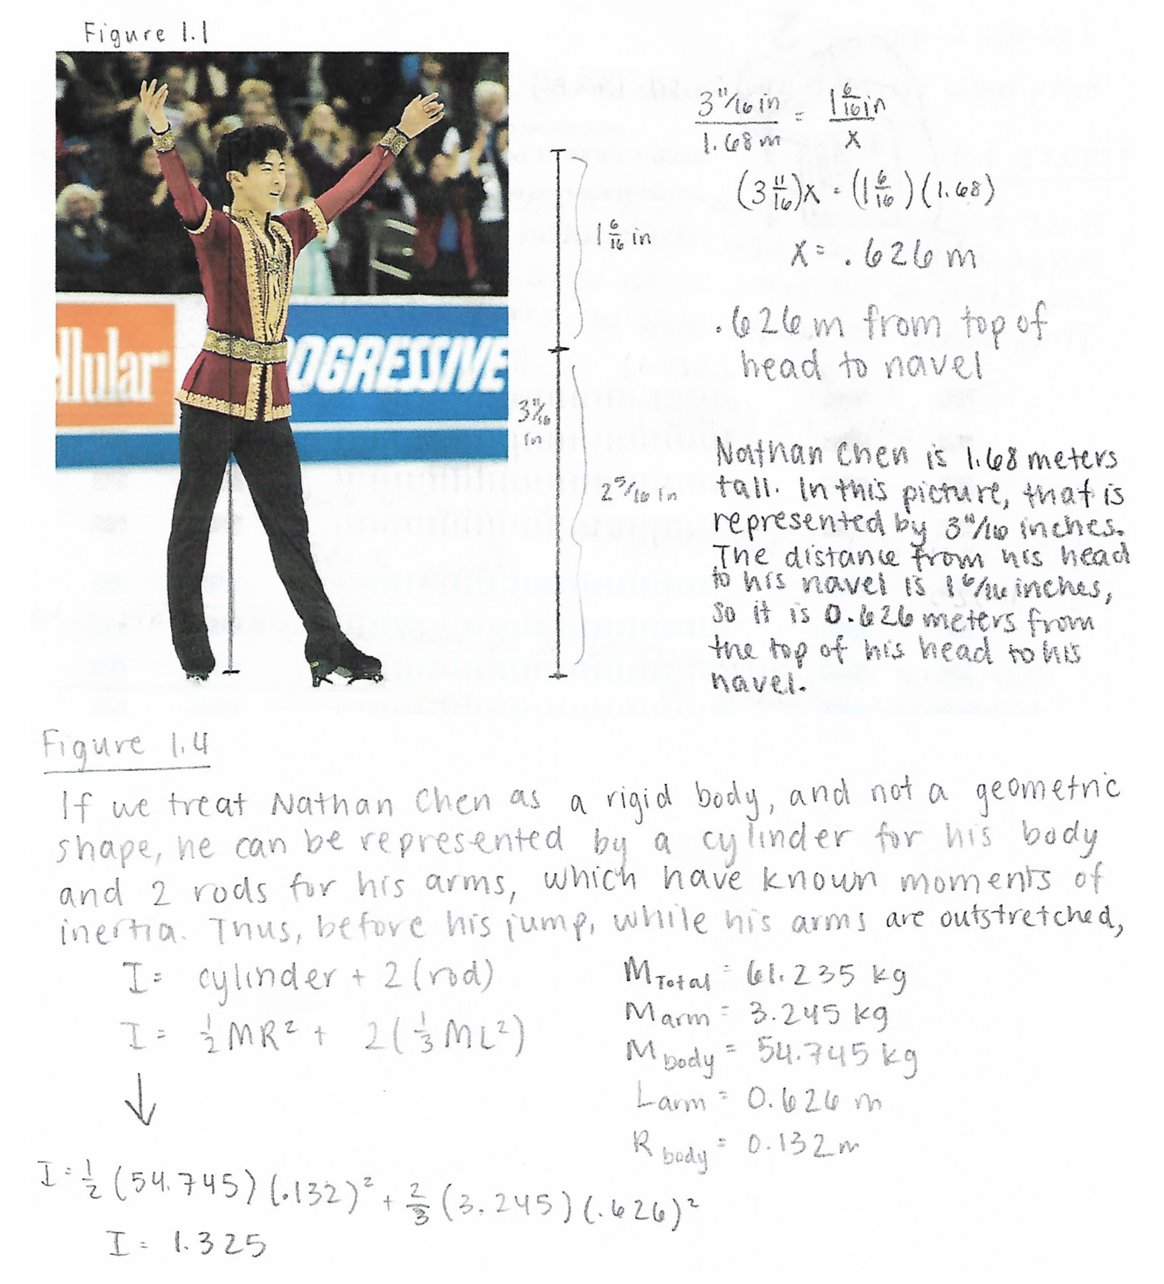 Figure 1.1
ellular
OGRESSIVE
1 6/16 in
3 11/16 in
2 5/16 in
3 11/16 in / 1.68 m = 1 6/16 in / x
(3 11/16)x = (1 6/16)(1.68)
x = .626 m
.626 m from top of
head to navel
Nathan Chen is 1.68 meters
tall. In this picture, that is
represented by 3 11/16 inches.
The distance from his head
to his navel is 1 6/16 inches,
so it is 0.626 meters from
the top of his head to his
navel.
Figure 1.4
If we treat Nathan Chen as a rigid body, and not a geometric
shape, he can be represented by a cylinder for his body
and 2 rods for his arms, which have known moments of
inertia. Thus, before his jump, while his arms are outstretched,
I = cylinder + 2(rod)
I = 1/2 MR² + 2(1/3 ML²)
M Total = 61.235 kg
M arm = 3.245 kg
M body = 54.745 kg
L arm = 0.626 m
R body = 0.132 m
I = 1/2 (54.745)(.132)² + 2/3 (3.245)(.626)²
I = 1.325